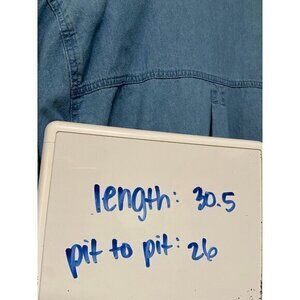 length: 30.5
pit to pit: 26